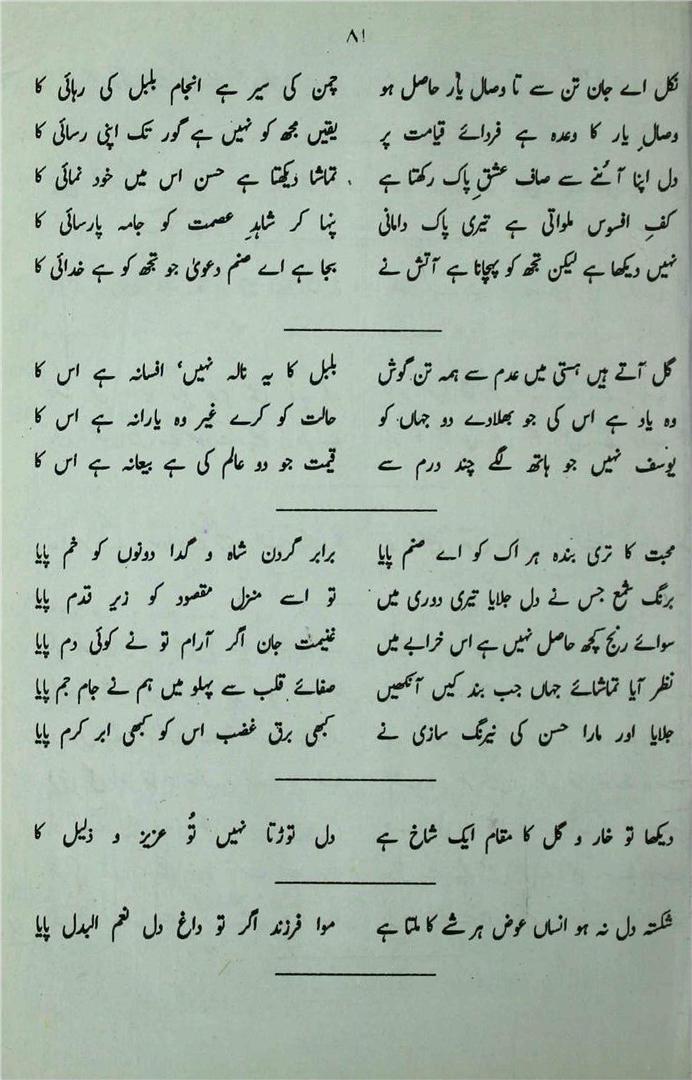 ۸۱
نکل اے جان تن سے تا وصال یار حاصل ہو چمن کی سیر ہے انجام بلبل کی رہائی کا
وصالِ یار کا وعدہ ہے فردائے قیامت پر یقیں مجھ کو نہیں ہے گور تک اپنی رسائی کا
دل اپنا آئنے سے صاف عشقِ پاک رکھتا ہے تماشا دیکھتا ہے حسن اس میں خود نمائی کا
کفِ افسوس ملواتی ہے تیری پاک دامانی پنہا کر شاہدِ عصمت کو جامہ پارسائی کا
نہیں دیکھا ہے لیکن تجھ کو پہچانا ہے آتش نے بجا ہے اے صنم دعویٰ جو تجھ کو ہے خدائی کا
گل آتے ہیں ہستی میں عدم سے ہمہ تن گوش بلبل کا یہ نالہ نہیں، افسانہ ہے اس کا
وہ یاد ہے اس کی جو بھلادے دو جہاں کو حالت کو کرے غیر وہ یارانہ ہے اس کا
یوسف نہیں جو ہاتھ لگے چند درم سے قیمت جو دو عالم کی ہے بیعانہ ہے اس کا
محبت کا تری بندہ ہر اک کو اے صنم پایا برابر گردن شاہ و گدا دونوں کو خم پایا
برنگ شمع جس نے دل جلایا تیری دوری میں تو اسے منزل مقصود کو زیرِ قدم پایا
سوائے رنج کچھ حاصل نہیں ہے اس خرابے میں غنیمت جان اگر آرام تو نے کوئی دم پایا
نظر آیا تماشائے جہاں جب بند کیں آنکھیں صفائے قلب سے پہلو میں ہم نے جام جم پایا
جلایا اور مارا حسن کی نیرنگ سازی نے کبھی برق غضب اس کو کبھی ابر کرم پایا
دیکھا تو خار و گل کا مقام ایک شاخ ہے دل توڑتا نہیں تُو عزیز و ذلیل کا
شکستہ دل نہ ہو انساں عوض ہر شے کا ملتا ہے موا فرزند اگر تو داغ دل نعم البدل پایا